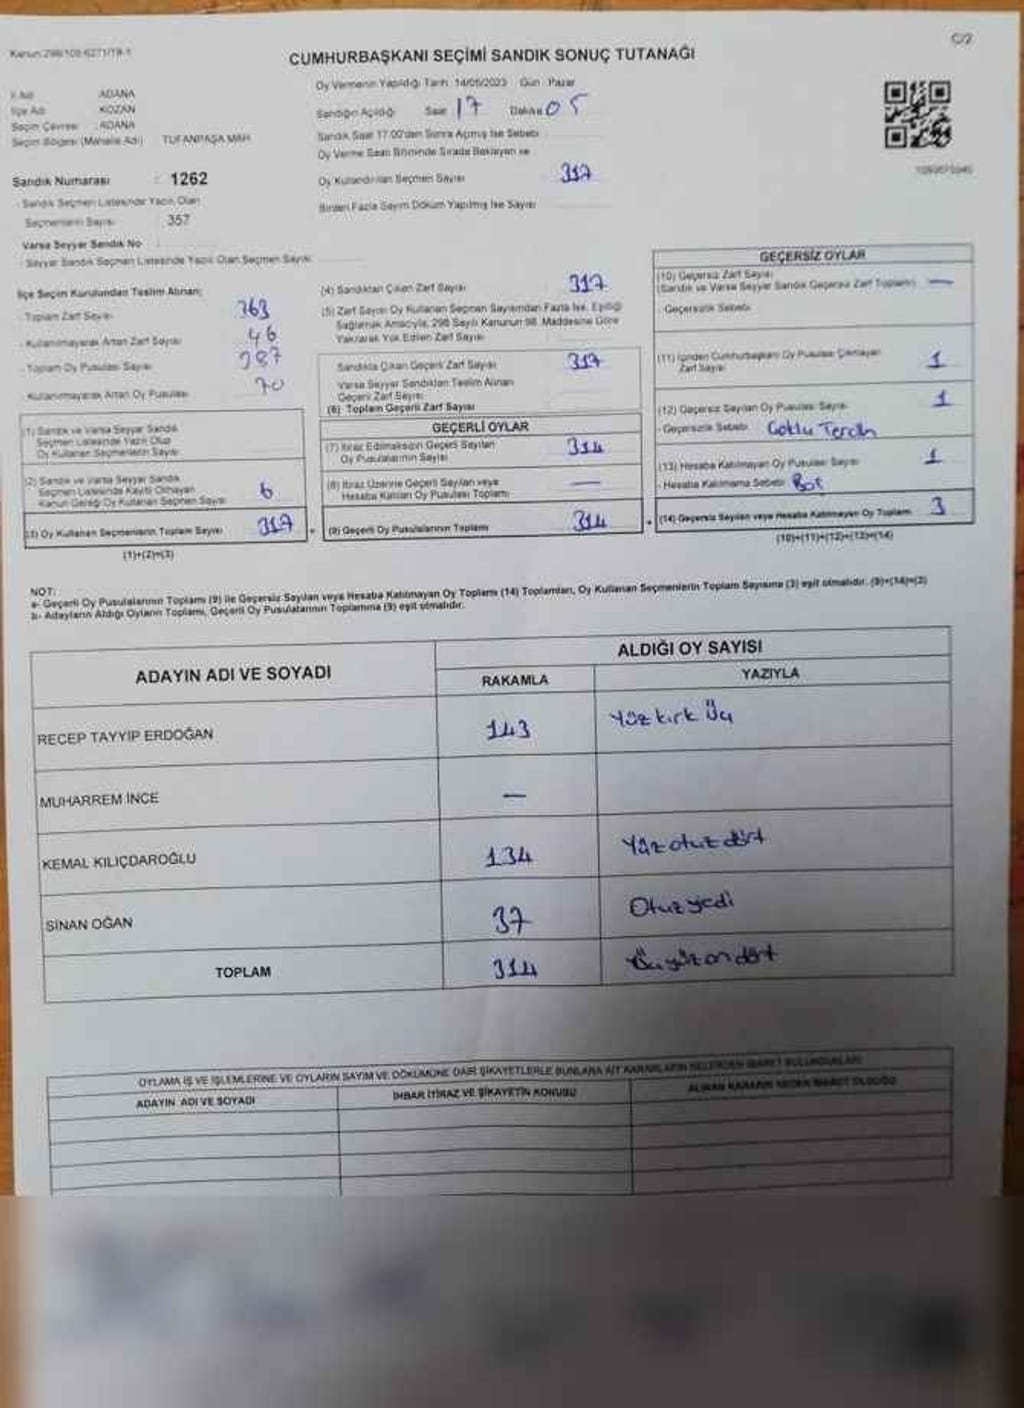 Kanun:298/105-6271/19-1
C/2
CUMHURBAŞKANI SEÇİMİ SANDIK SONUÇ TUTANAĞI
İl Adı : ADANA
İlçe Adı : KOZAN
Seçim Çevresi : ADANA
Seçim Bölgesi (Mahalle Adı) : TUFANPAŞA MAH
Sandık Numarası : 1262
- Sandık Seçmen Listesinde Yazılı Olan
Seçmenlerin Sayısı : 357
Varsa Seyyar Sandık No :
- Seyyar Sandık Seçmen Listesinde Yazılı Olan Seçmen Sayısı:
Oy Vermenin Yapıldığı Tarih: 14/05/2023 Gün : Pazar
Sandığın Açıldığı Saat 17 Dakika 05
Sandık Saat 17.00'den Sonra Açılmış İse Sebebi
Oy Verme Saati Bitiminde Sırada Bekleyen ve
Oy Kullandırılan Seçmen Sayısı 317
Birden Fazla Sayım Döküm Yapılmış İse Sayısı
İlçe Seçim Kurulundan Teslim Alınan;
- Toplam Zarf Sayısı 363
- Kullanılmayarak Artan Zarf Sayısı 46
- Toplam Oy Pusulası Sayısı 387
- Kullanılmayarak Artan Oy Pusulası 70
(1) Sandık ve Varsa Seyyar Sandık
Seçmen Listesinde Yazılı Olup
Oy Kullanan Seçmenlerin Sayısı
(2) Sandık ve Varsa Seyyar Sandık
Seçmen Listesinde Kayıtlı Olmayan
Kanun Gereği Oy Kullanan Seçmen Sayısı 6
(3) Oy Kullanan Seçmenlerin Toplam Sayısı 317
(1)+(2)=(3)
(4) Sandıktan Çıkan Zarf Sayısı 317
(5) Zarf Sayısı Oy Kullanan Seçmen Sayısından Fazla İse, Eşitliği
Sağlamak Amacıyla, 298 Sayılı Kanunun 98. Maddesine Göre
Yakılarak Yok Edilen Zarf Sayısı
Sandıkta Çıkan Geçerli Zarf Sayısı 317
Varsa Seyyar Sandıktan Teslim Alınan
Geçerli Zarf Sayısı
(6) Toplam Geçerli Zarf Sayısı
GEÇERLİ OYLAR
(7) İtiraz Edilmeksizin Geçerli Sayılan
Oy Pusulalarının Sayısı 314
(8) İtiraz Üzerine Geçerli Sayılan veya
Hesaba Katılan Oy Pusulası Toplamı —
(9) Geçerli Oy Pusulalarının Toplamı 314
GEÇERSİZ OYLAR
(10) Geçersiz Zarf Sayısı
(Sandık ve Varsa Seyyar Sandık Geçersiz Zarf Toplamı) —
- Geçersizlik Sebebi
(11) İçinden Cumhurbaşkanı Oy Pusulası Çıkmayan
Zarf Sayısı 1
(12) Geçersiz Sayılan Oy Pusulası Sayısı 1
- Geçersizlik Sebebi Çoklu Tercih
(13) Hesaba Katılmayan Oy Pusulası Sayısı 1
- Hesaba Katılmama Sebebi Boş
(14) Geçersiz Sayılan veya Hesaba Katılmayan Oy Toplamı 3
(10)+(11)+(12)+(13)=(14)
NOT:
a- Geçerli Oy Pusulalarının Toplamı (9) ile Geçersiz Sayılan veya Hesaba Katılmayan Oy Toplamı (14) Toplamları, Oy Kullanan Seçmenlerin Toplam Sayısına (3) eşit olmalıdır. (9)+(14)=(3)
b- Adayların Aldığı Oyların Toplamı, Geçerli Oy Pusulalarının Toplamına (9) eşit olmalıdır.
ADAYIN ADI VE SOYADI ALDIĞI OY SAYISI
RAKAMLA YAZIYLA
RECEP TAYYİP ERDOĞAN 143 Yüz kırk üç
MUHARREM İNCE —
KEMAL KILIÇDAROĞLU 134 Yüz otuz dört
SİNAN OĞAN 37 Otuz yedi
TOPLAM 314 Üç yüz on dört
OYLAMA İŞ VE İŞLEMLERİNE VE OYLARIN SAYIM VE DÖKÜMÜNE DAİR ŞİKAYETLERLE BUNLARA AİT KARARLARIN NELERDEN İBARET BULUNDUKLARI
ADAYIN ADI VE SOYADI İHBAR İTİRAZ VE ŞİKAYETİN KONUSU ALINAN KARARIN NEDEN İBARET OLDUĞU